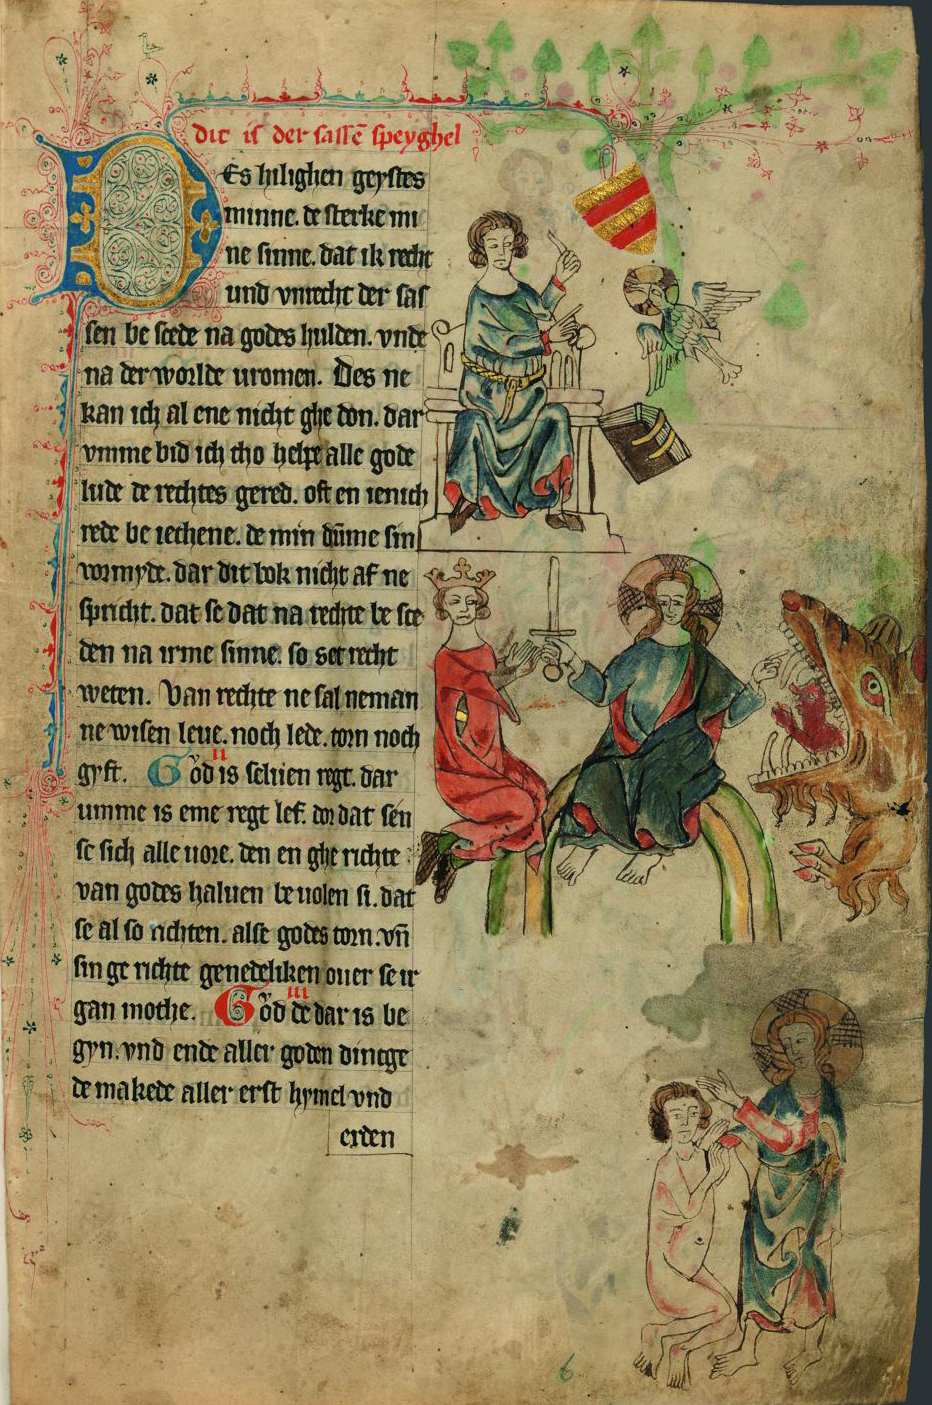 dit is der sassē speyghel
DEs hilighen geystes
minne. de sterke mi
ne sinne. dat ik recht
und vnrecht der sas
sen be scede na godes hulden. vnde
na der worlde uromen. Des ne
kan ich al ene nicht ghe don. dar
vmme bid ich tho helpe alle gode
lude de rechtes gered. oft en ienich
rede be iechene. de min dūme sin
vormyde. dar dit bok nicht af ne
spricht. dat se dat na rechte be sce
den na irme sinne. so set recht
weten. Van rechte ne sal neman
ne wisen leue. noch lede. torn noch
gyft. II God is seluen regt. dar
umme is eme regt lef. dor dat sen
se sich alle uore. den en ghe richte
van godes haluen be uolen si. dat
se al so richten. alse godes torn. vn̄
sin ge richte genedeliken ouer se ir
gan mothe. III God de dar is be
gyn. vnd ende aller goden dincge
de makede aller erst hymel vnd
erden
6